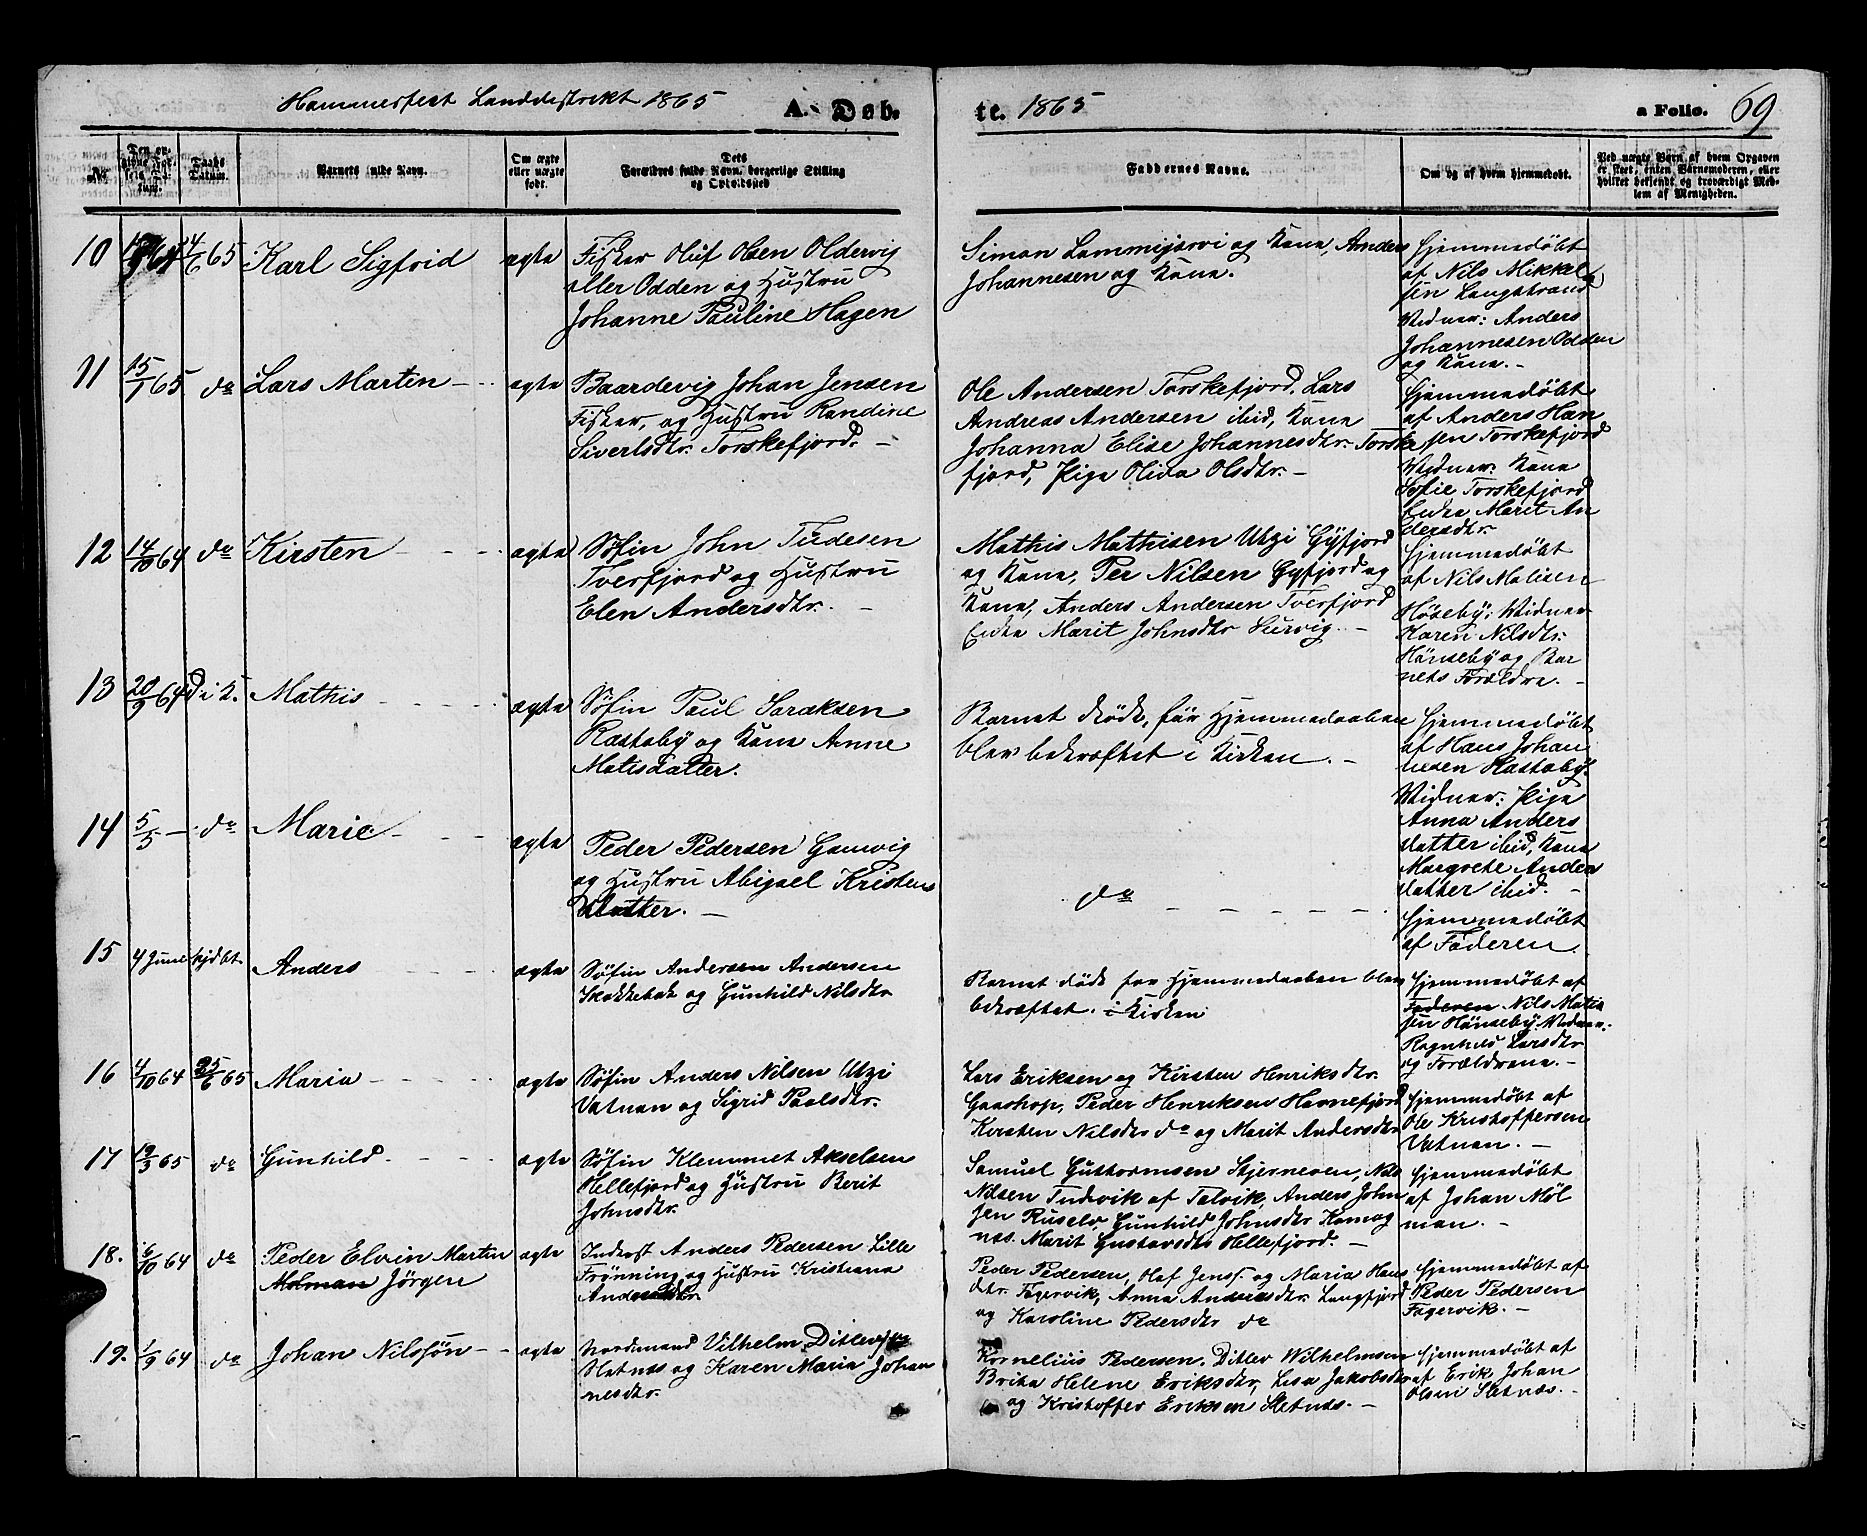 Hammerfest Landdistrikt 1865 A. Døb- te. 1865 a Folio. 69
No.
Den angivne Fødsels Datum.
Daabs Datum.
Barnets fulde Navn.
Om ægte eller uægte født.
Dets Forældres fulde Navn, borgerlige Stilling og Opholdssted
Faddernes Navne.
Om og af hvem hjemmedøbt.
Ved uægte Barn af hvem Opgaven er skeet, enten Barnemoderen, eller hvilket bekjendt og troværdigt Medlem af Menigheden.
10 64 4/6 65 Karl Sigfrid ægte
Fisker Oluf Olsen Oldervig
eller Odden og Hustru
Johanne Pauline Hagen
Simon Lammijærvi og Kone, Anders
Johannesen og Kone.
Hjemmedøbt
af Nils Mikkel
sen Langstrand
Vidner: Anders
Johannesen Odden
og Kone.-
11 15/1 65 do Lars Marten - ægte
Baardevig Johan Jensen
Fisker, og Hustru Randine
Sivertsdtr. Torskefjord. -
Ole Andersen Torskefjord, Lars
Andreas Andersen ibid, Kone
Johanna Elise Johannesdtr. Torske
fjord, Pige Oliva Olsdtr. -
Hjemmedøbt
af Anders Han
sen Torskefjord
Vidner: Kone
Sofie Torskefjord
Enke Marit An
dersdtr.
12 14/10 64 do Kirsten - ægte
Søfin John Tudesen
Tverfjord og Hustru
Elen Andersdtr. -
Mathis Mathisen Utzi Gyfjord
og Kone, Per Nilsen Gyfjord og
Kone, Anders Andersen Tverfjord
Enke Marit Johnsdtr Survig. -
Hjemmedøbt
af Nils Matisen
Hønseby; Vidner
Karen Nilsdtr.
Hønseby og Bar
nets Forældre. -
13 20/9 64 D i K. Mathis - ægte
Søfin Paul Saraksen
Rastaby og Kone Anne
Matisdatter.
Barnet døde, før Hjemmedaaben
blev bekræftet i Kirken. -
Hjemmedøbt
af Hans Johan
nesen Rastaby.
Vidner: Pige
Anna Anders
datter ibid, Kone
Margrete Anders
datter ibid. -
14 5/5 - do Marie - ægte
Peder Pedersen Gamvig
og Hustru Abigael Kristens
datter. -
do
Hjemmedøbt
af Faderen
15 4 Juni hjdbt Anders - ægte
Søfin Andersen Andersen
Skakkebak og Gunhild Nilsdtr
Barnet døde før Hjemmedaaben blev
bekræftet. i Kirken
Hjemmedøbt af
Faderen Nils Matis
sen Hønseby. Vidner.
Ragnhild Larsdtr
og Forældrene. -
16 4/10 64 25/6 65 Maria - ægte
Søfin Anders Nilsen Utzi
Vatnan og Sigrid Paalsdtr.
Lars Eriksen og Kirsten Henriksdtr.
Gaashop, Peder Henriksen Havnefjord
Kirsten Nilsdtr do og Marit Andersdtr
Hjemmedøbt af
Ole Kristoffersen
Vatnan. -
17 19/3 65 do Gunhild. - ægte
Søfin Klemmet Akselsen
Hellefjord og Hustru Berit
Johnsdtr.
Samuel Gustavmsen Stjerneven, Nils
Nilsen Tudevik af Talvik, Anders John
sen Ruselv, Gunhild Johnsdtr Komag
næs. Marit Gustavsdtr Hellefjord. -
Hjemmedøbt
af Johan Møl
man. -
18. 6/10 64 do Peder Elvin Martin
Molman Jörgen ægte
Inderst Anders Pedersen Lille
Frønning og Hustru Kristiana
Andersdtr.
Peder Pedersen, Olaf Jenss. og Maria Hans
dtr. Fagervik, Anna Andersdtr. Langfjord
og Karoline Pedersdtr do
Hjemmedøbt af
Peder Pedersen
Fagervik. -
19. 1/9 64 do Johan Nilssøn - ægte
Nordmand Vilhelm Ditlevsen
Slatnæs og Karen Maria Johan
nesdtr.
Kornelius Pedersen. Ditlev Wilhelmsen
Brita Helene Eriksdtr, Lisa Jakobsdtr
og Kristoffer Eriksen Sletnæs. -
Hjemmedøbt
af Erik Johan
Olsen Sletnæs. -